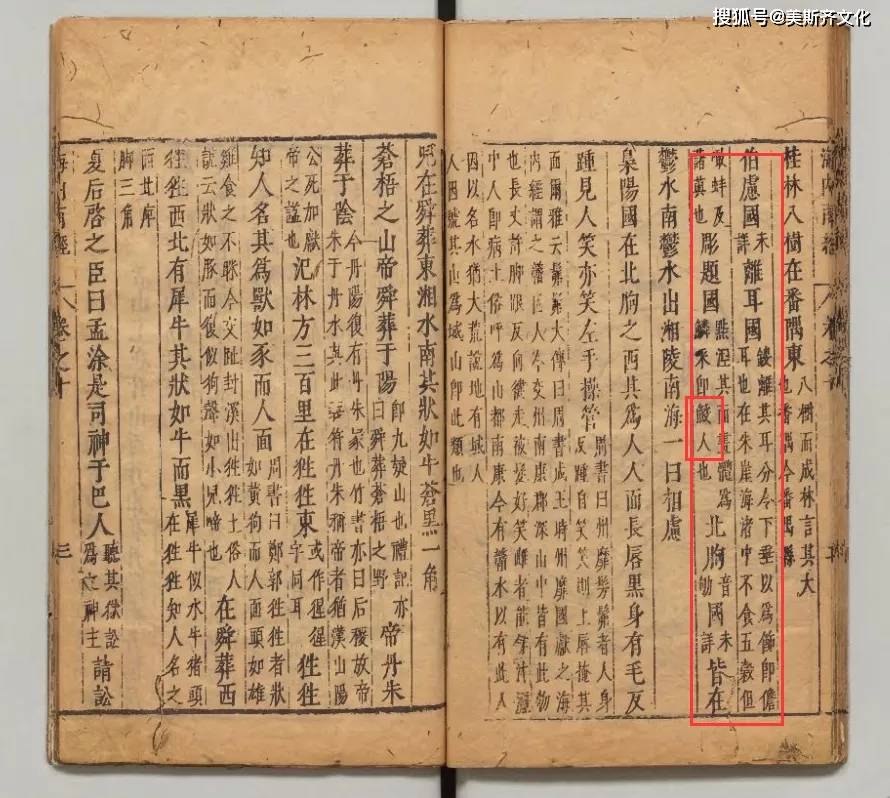 搜狐号@美斯齐文化
海内南經 卷之十
桂林八樹在番隅東八樹而成林言其大也番隅今番禺縣
伯慮國未詳離耳國鎪離其耳分令下垂以為飾即儋耳也在朱崖海渚中不食五穀但
噉蚌及藷藇也彫題國點涅其面畫體為鱗采即鮫人也北朐音劬國未詳皆在
鬱水南鬱水出湘陵南海一曰相慮
梟陽國在北朐之西其為人人面長唇黑身有毛反
踵見人笑亦笑左手操管周書曰州靡髣髴者人身反踵自笑笑則上唇掩其
面爾雅云髴髴大傳曰周書成王時州靡國獻之海内經謂之贛巨人今交州南康郡深山中皆有此物
也長丈許脚跟反向健走被髮好笑雌者能作汁灑中人即病土俗呼為山都南康今有贛水以有此人
因以名水猶大荒說地有蜮人人因號其山為蜮山即此類也
兕在舜葬東湘水南其狀如牛蒼黑一角
蒼梧之山帝舜葬于陽即九疑山也禮記亦曰舜葬蒼梧之野帝丹朱
葬于陰今丹陽復有丹朱冢也竹書亦曰后稷放帝朱于丹水與此義符丹朱稱帝者猶漢山陽
公死加獻帝之謚也氾林方三百里在狌狌東或作猩猩字同耳狌狌
知人名其為獸如豕而人面周書曰鄭郭狌狌者狀如黃狗而人面頭如雄
雞食之不眯今交趾封溪出狌狌土俗人說云狀如豚而復似狗聲如小兒啼也在舜葬西
狌狌西北有犀牛其狀如牛而黑犀牛似水牛猪頭在狌狌知人名之
西此庳脚三角
夏后啓之臣曰孟涂是司神于巴人聽其獄訟為之神主請訟
海内南經 卷之十 三